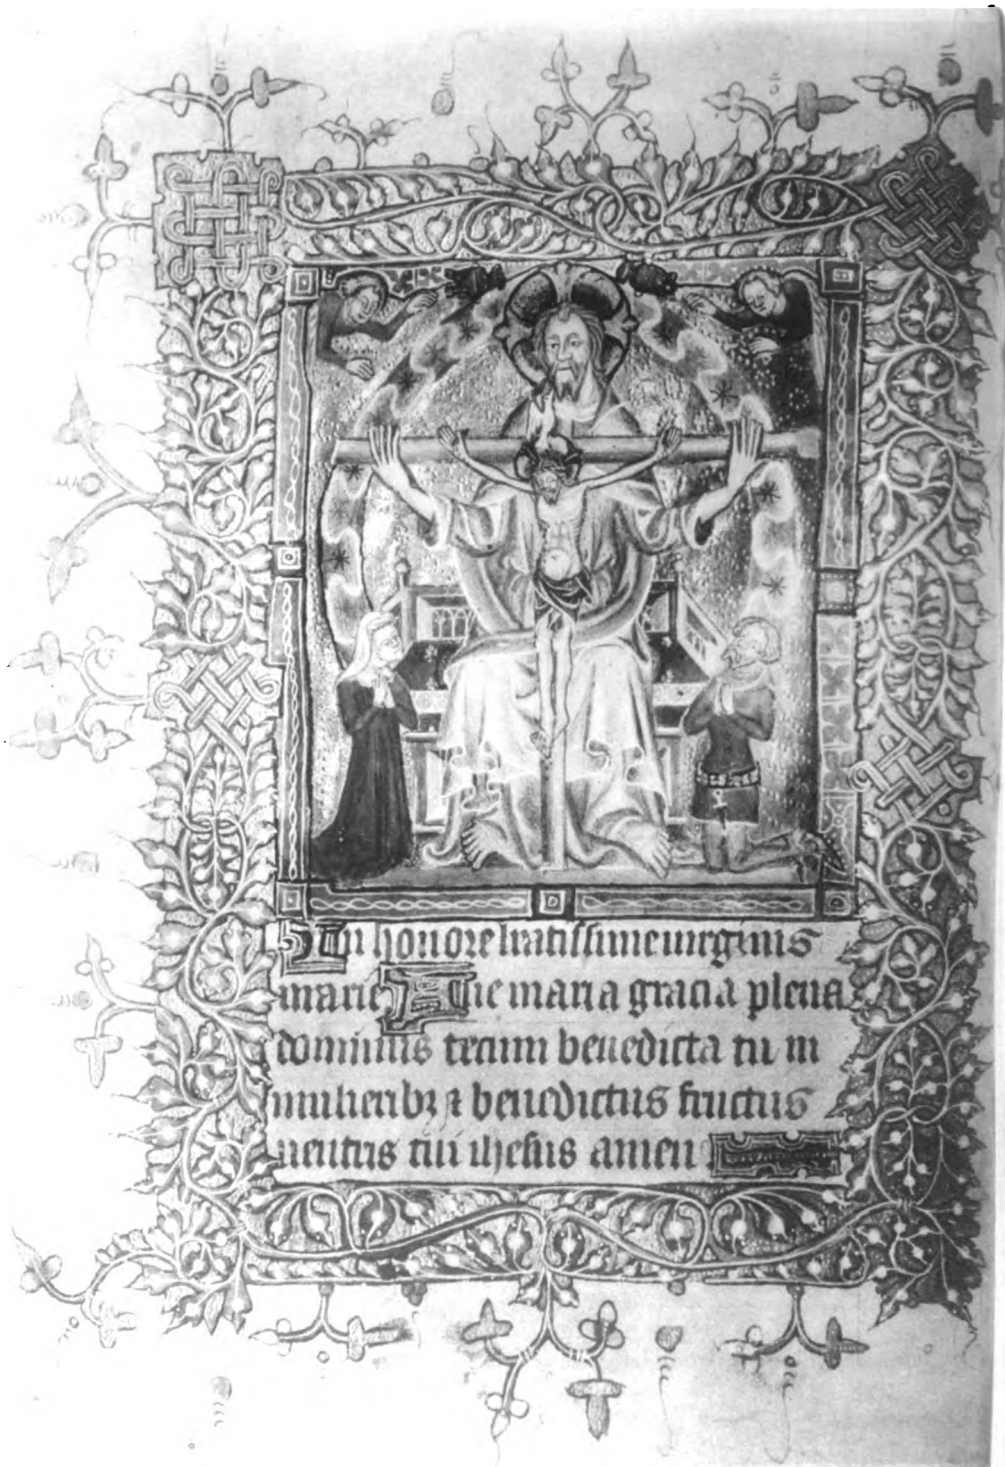 In honore beatissime uirginis
marie Aue maria gracia plena
dominus tecum benedicta tu in
mulieribꝫ ⁊ benedictus fructus
uentris tui ihesus amen